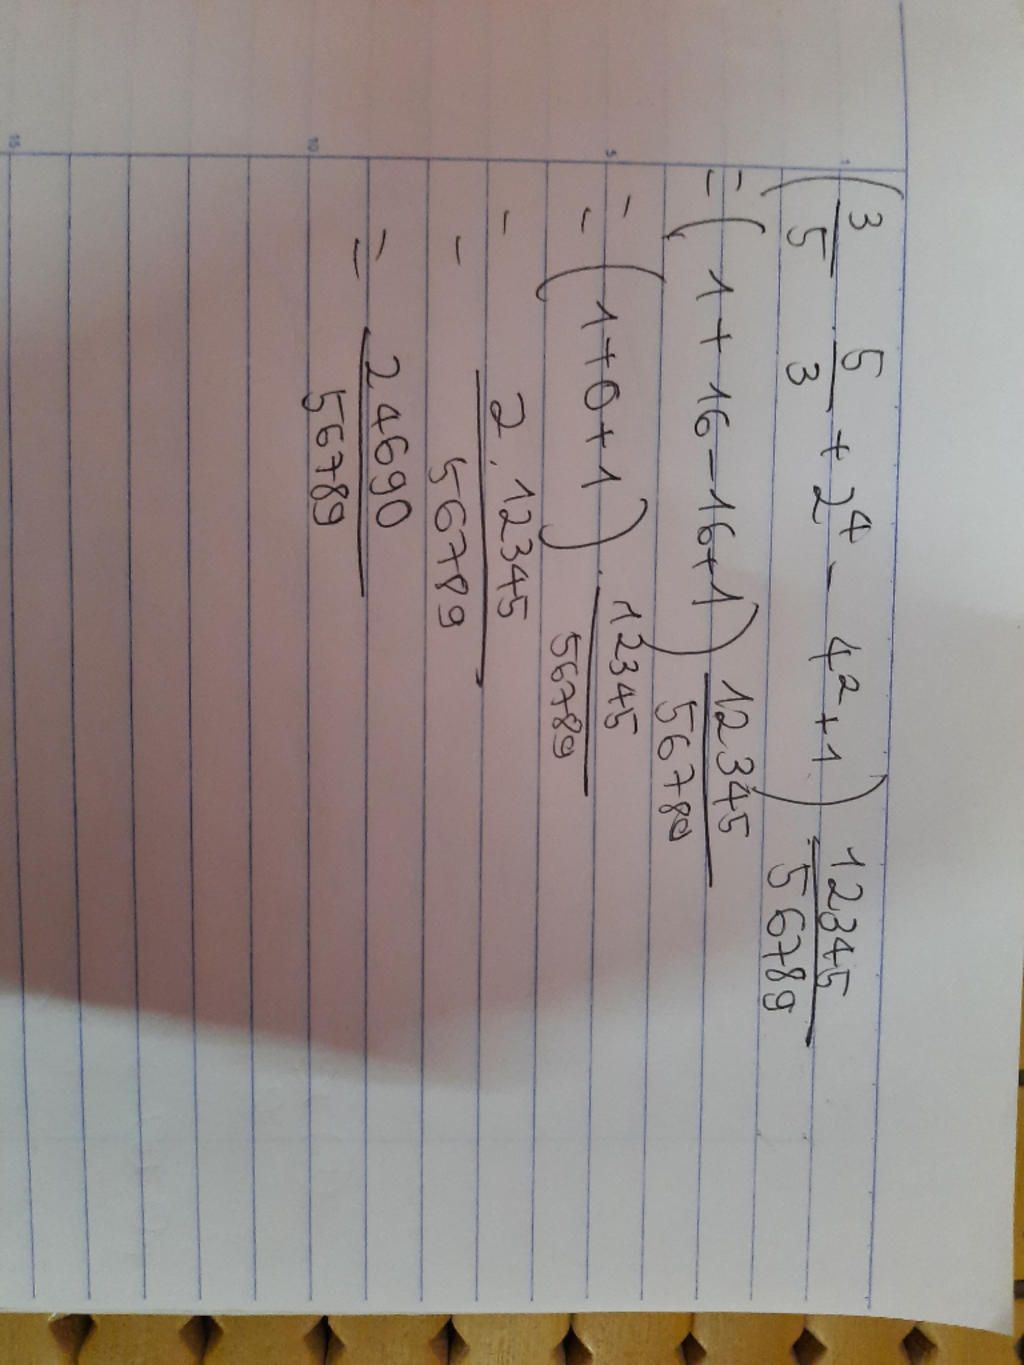 (3/5 · 5/3 + 2⁴ - 4² + 1) · 12345/56789
= (1 + 16 - 16 + 1) 12345/56789
= (1 + 0 + 1) · 12345/56789
= 2 . 12345/56789
= 24690/56789